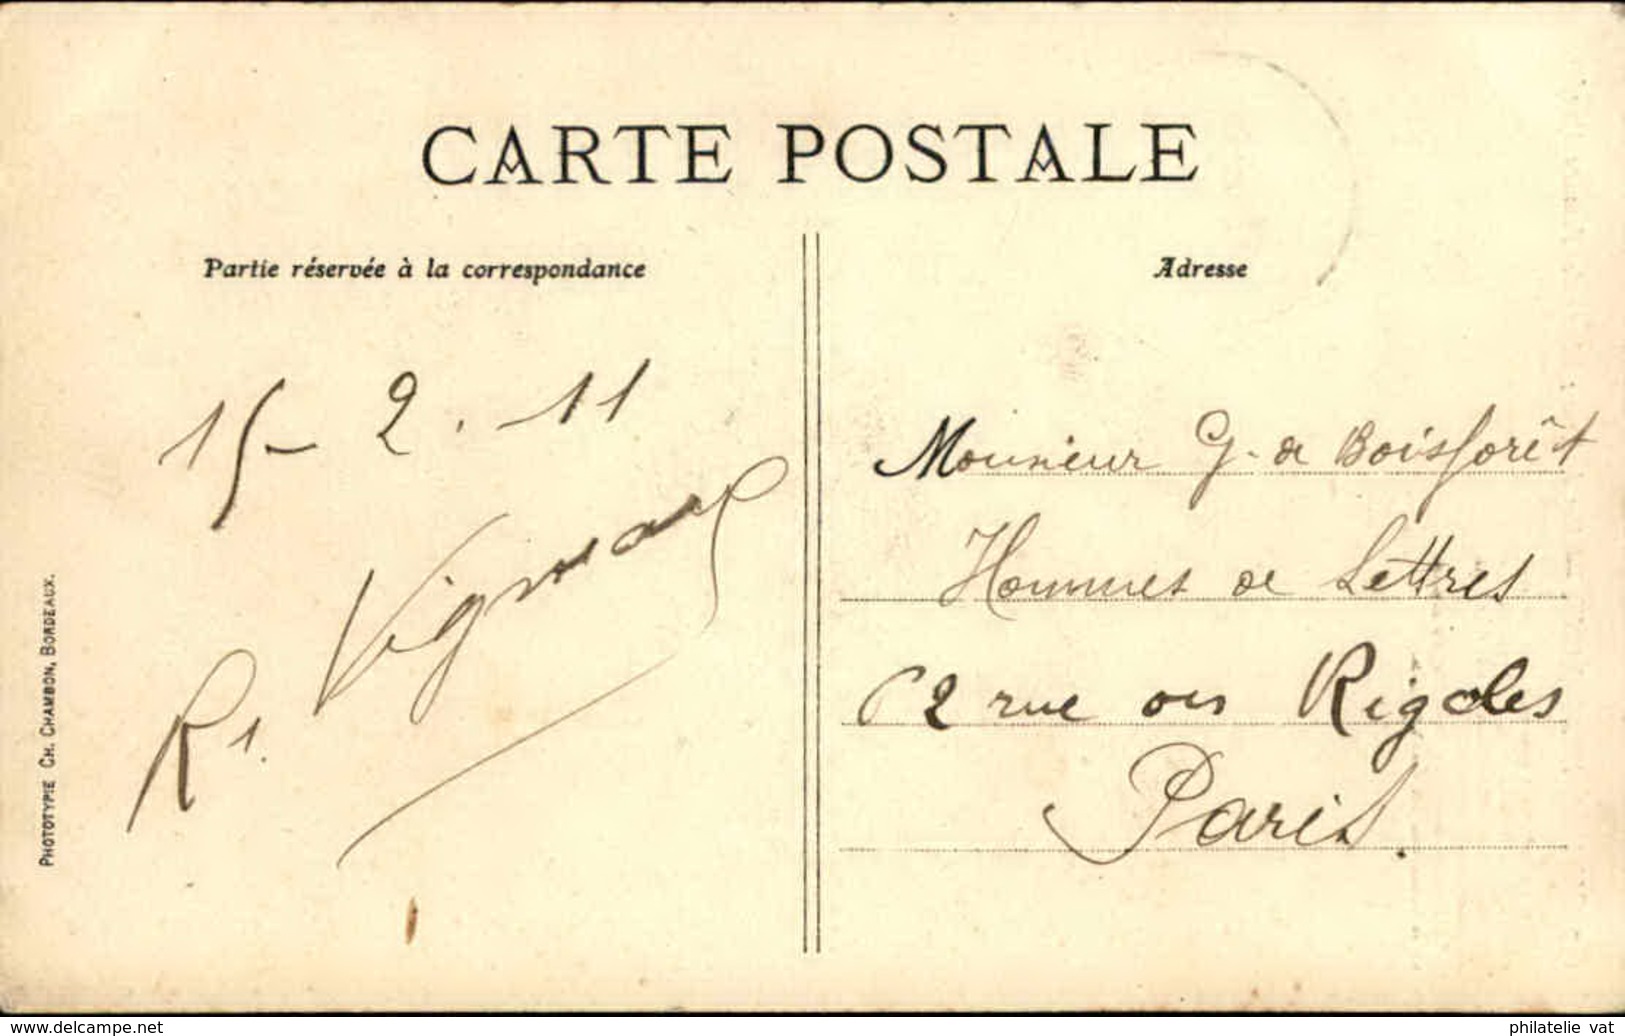 CARTE POSTALE
Partie réservée à la correspondance
Adresse
15 - 2 . - 11
R. Vignaux
Monsieur G. de Boisforêt
Hommes de Lettres
62 rue des Rigoles
Paris.
PHOTOTYPIE CH. CHAMBON, BORDEAUX.
www.delcampe.net
philatelie vat